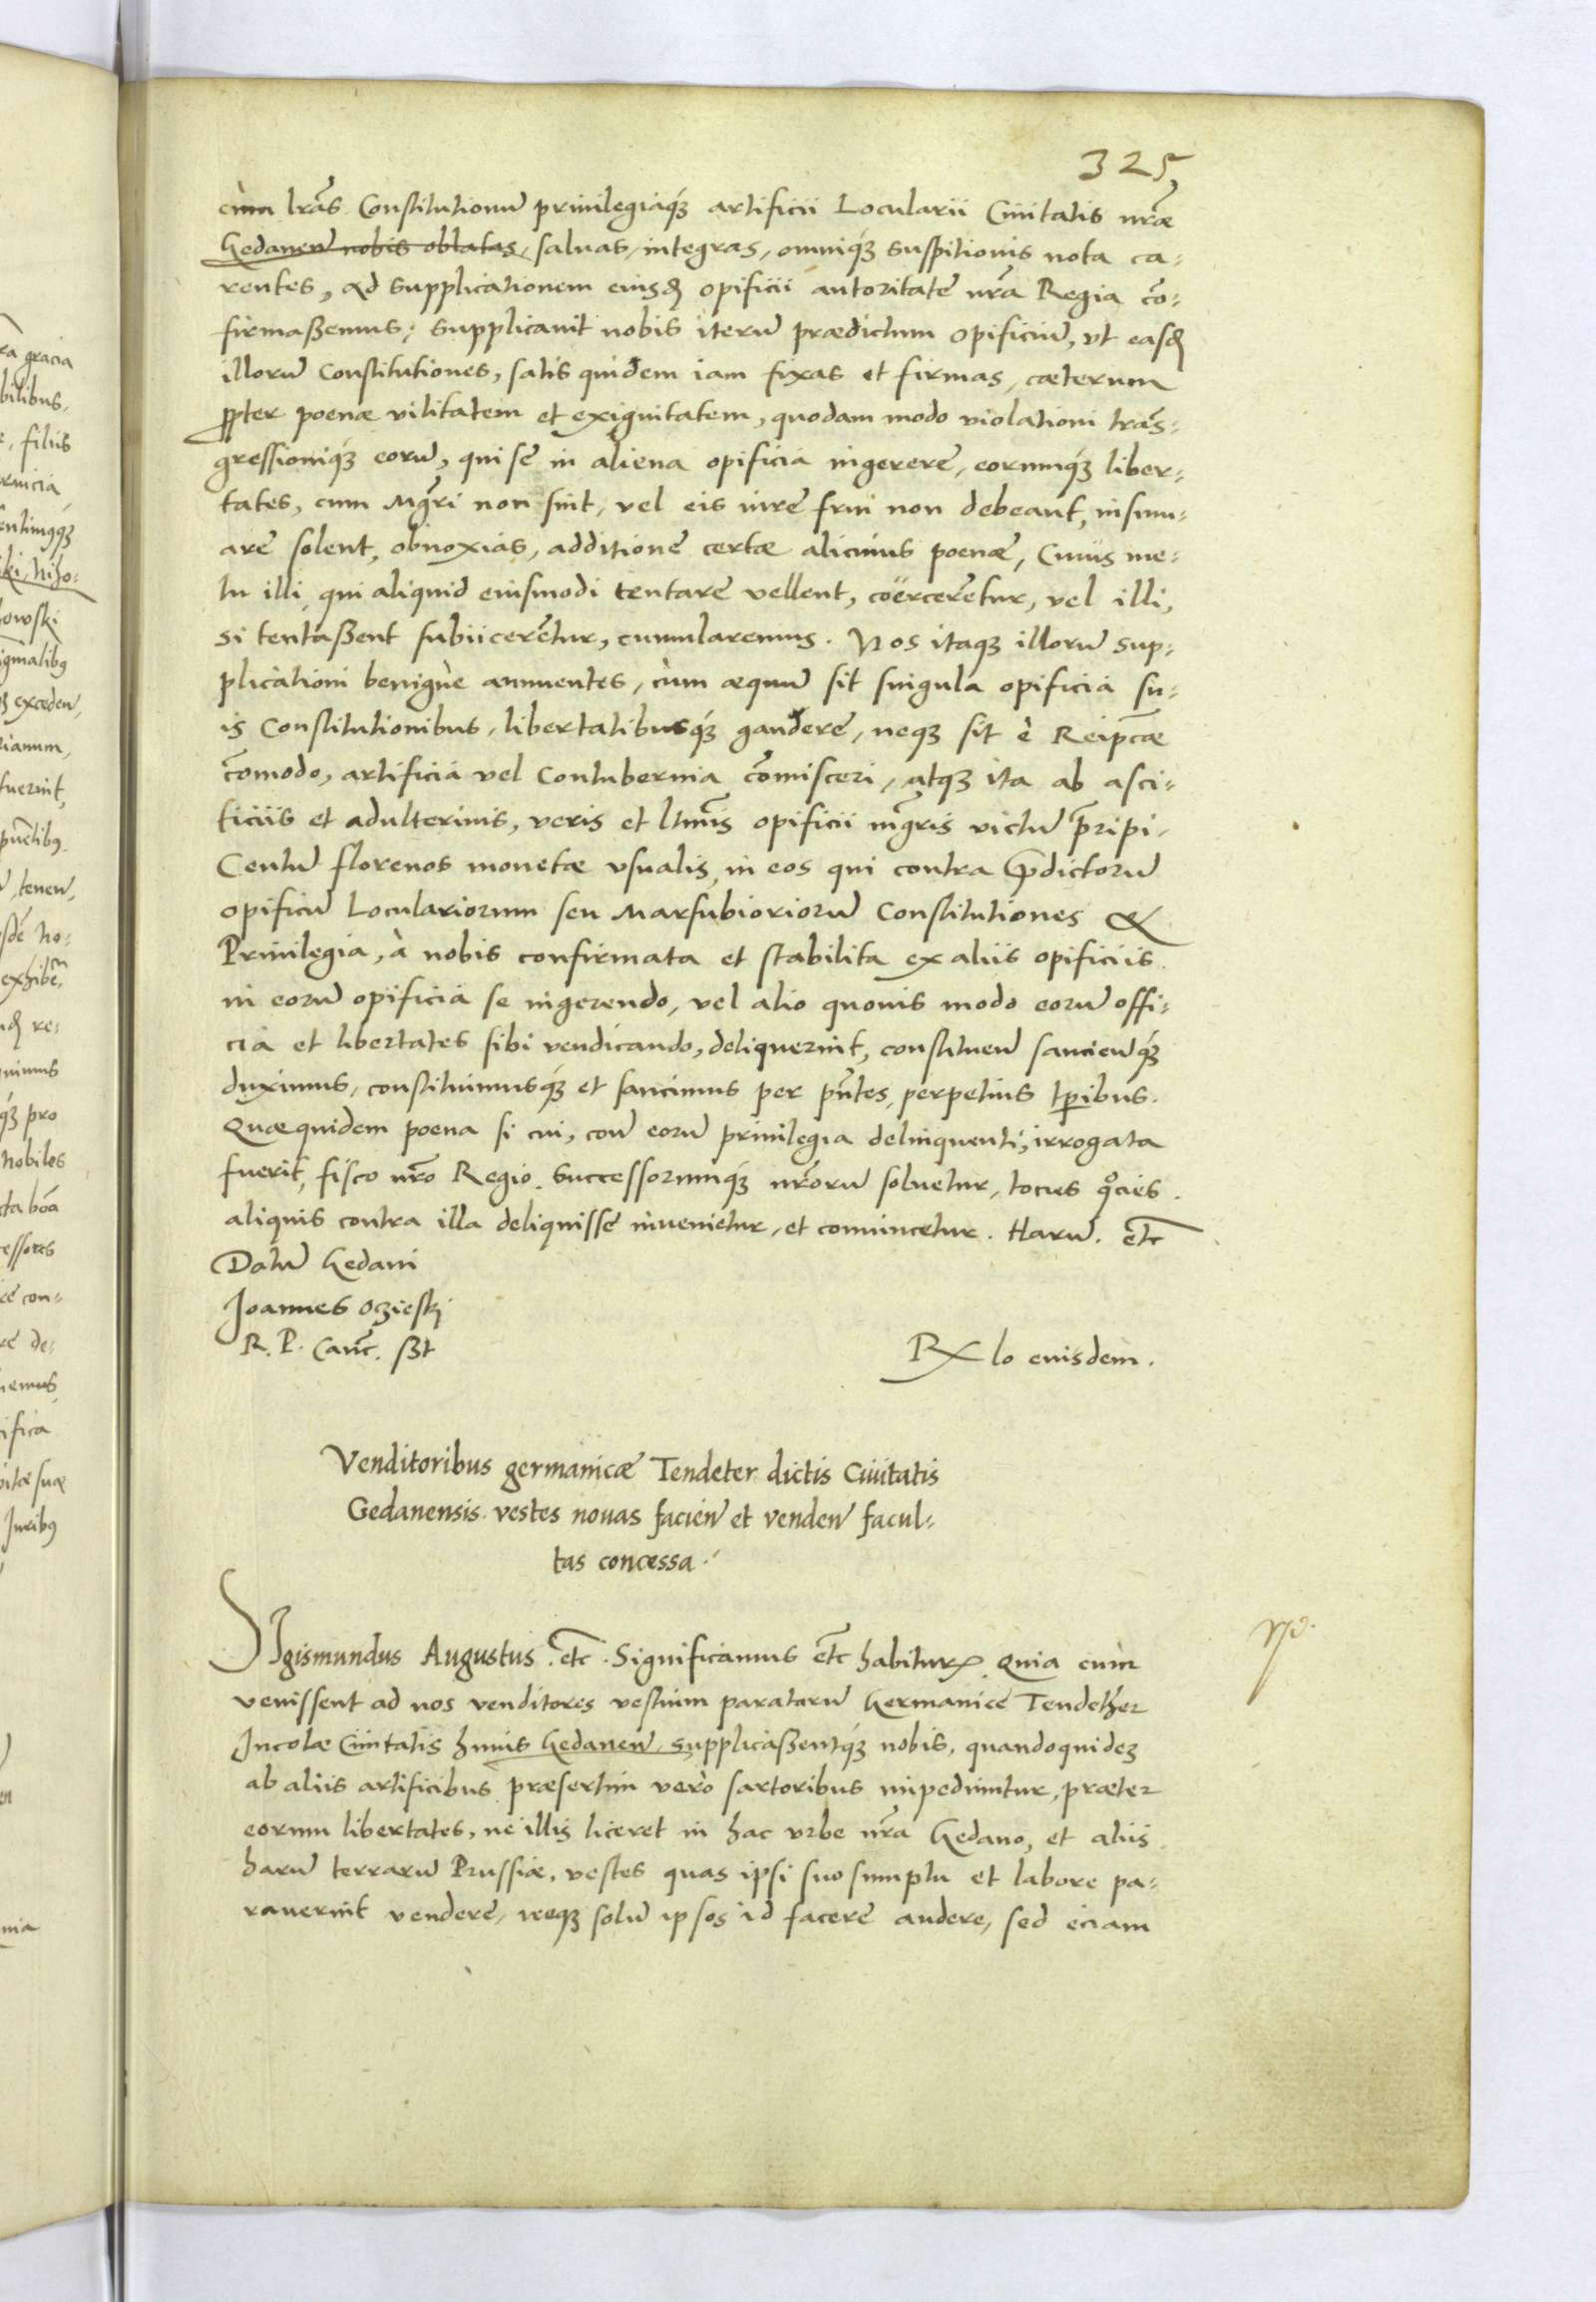 325
cùm lr̃as Constitutionũ priuilegiaq́ꝫ artificii Locularii Ciuitatis nr̃æ
Gedanen̄ nobis oblatas, saluas, integras, omniq́ꝫ suspitionis nota ca-
rentes, ad supplicationem eiusđ opificii autoritate nr̃a Regia cõ-
firmaßemus; supplicauit nobis iterũ prædictum opificiũ, vt easđ
illorũ Constitutiones, satis quidem iam fixas et firmas, cæterum
ꝓpter poenæ vilitatem et exiguitatem, quodam modo violationi trãs-
gressioniq́ꝫ eorũ, qui se in aliena opificia ingerere, eorumq́ꝫ liber-
tates, cum Mg̃ri non sint, vel eis iure frui non debeant, insinu-
are solent, obnoxias, additione certæ alicuius poenæ, Cuius me-
tu illi, qui aliquid eiusmodi tentare vellent, coërcerentur, vel illi,
si tentaßent subiicerentur, cumularemus. Nos itaqꝫ illorũ sup-
plicationi benignè annuentes, cùm æquũ sit singula opificia su-
is Constitutionibus, libertatibusq́ꝫ gaudere, neqꝫ sit è Reip̃cæ
cõmodo, artificia vel Contubernia cõmisceri, atqꝫ ita ab asci-
ticiis et adulterinis, veris et ltm̃is opificii mg̃ris victũ p̃ripi,
Centũ florenos monetæ vsualis, in eos qui contra p̃dictorũ
opificũ Loculariorum seu Marsubioriorũ Constitutiones &
Priuilegia, à nobis confirmata et stabilita ex aliis opificiis
in eorũ opificia se ingerendo, vel alio quouis modo eorũ offi-
cia et libertates sibi vendicando, deliquerint, constituen̄ sancien̄q́ꝫ
duximus, constituimusq́ꝫ et sancimus per pñtes, perpetuis tp̃ibus.
Quæquidem poena si cui, con̄ eorũ priuilegia delinquenti, irrogata
fuerit, fisco nr̃o Regio, Successorumq́ꝫ nr̃orũ soluetur, tocies q̊cies
aliquis contra illa deliquisse inuenietur, et conuincetur. Harũ. etc̃
Datũ Gedani
Joannes Oczieski
R. P. Canc̃. ßt
Rx lo eiusdem.
Venditoribus germanicæ Tendeter dictis Ciuitatis
Gedanensis. vestes nouas facien̄ et venden̄ facul-
tas concessa.
SIgismundus Augustus. etc̃. Significamus etc̃ habiturꝝ. Quia cum
venissent ad nos venditores vestium paratarũ Germanice Tendether
Incolæ Ciuitatis huius Gedanen̄, supplicaßentq́ꝫ nobis, quandoquideꝫ
ab aliis artificibus præsertim verò sartoribus impediuntur, præter
eorum libertates, ne illis liceret in hac vrbe nr̃a Gedano, et aliis
harũ terrarũ Prussiæ, vestes quas ipsi suo sumptu et labore pa-
rauerint vendere, neqꝫ solũ ipsos id facere audere, sed eciam